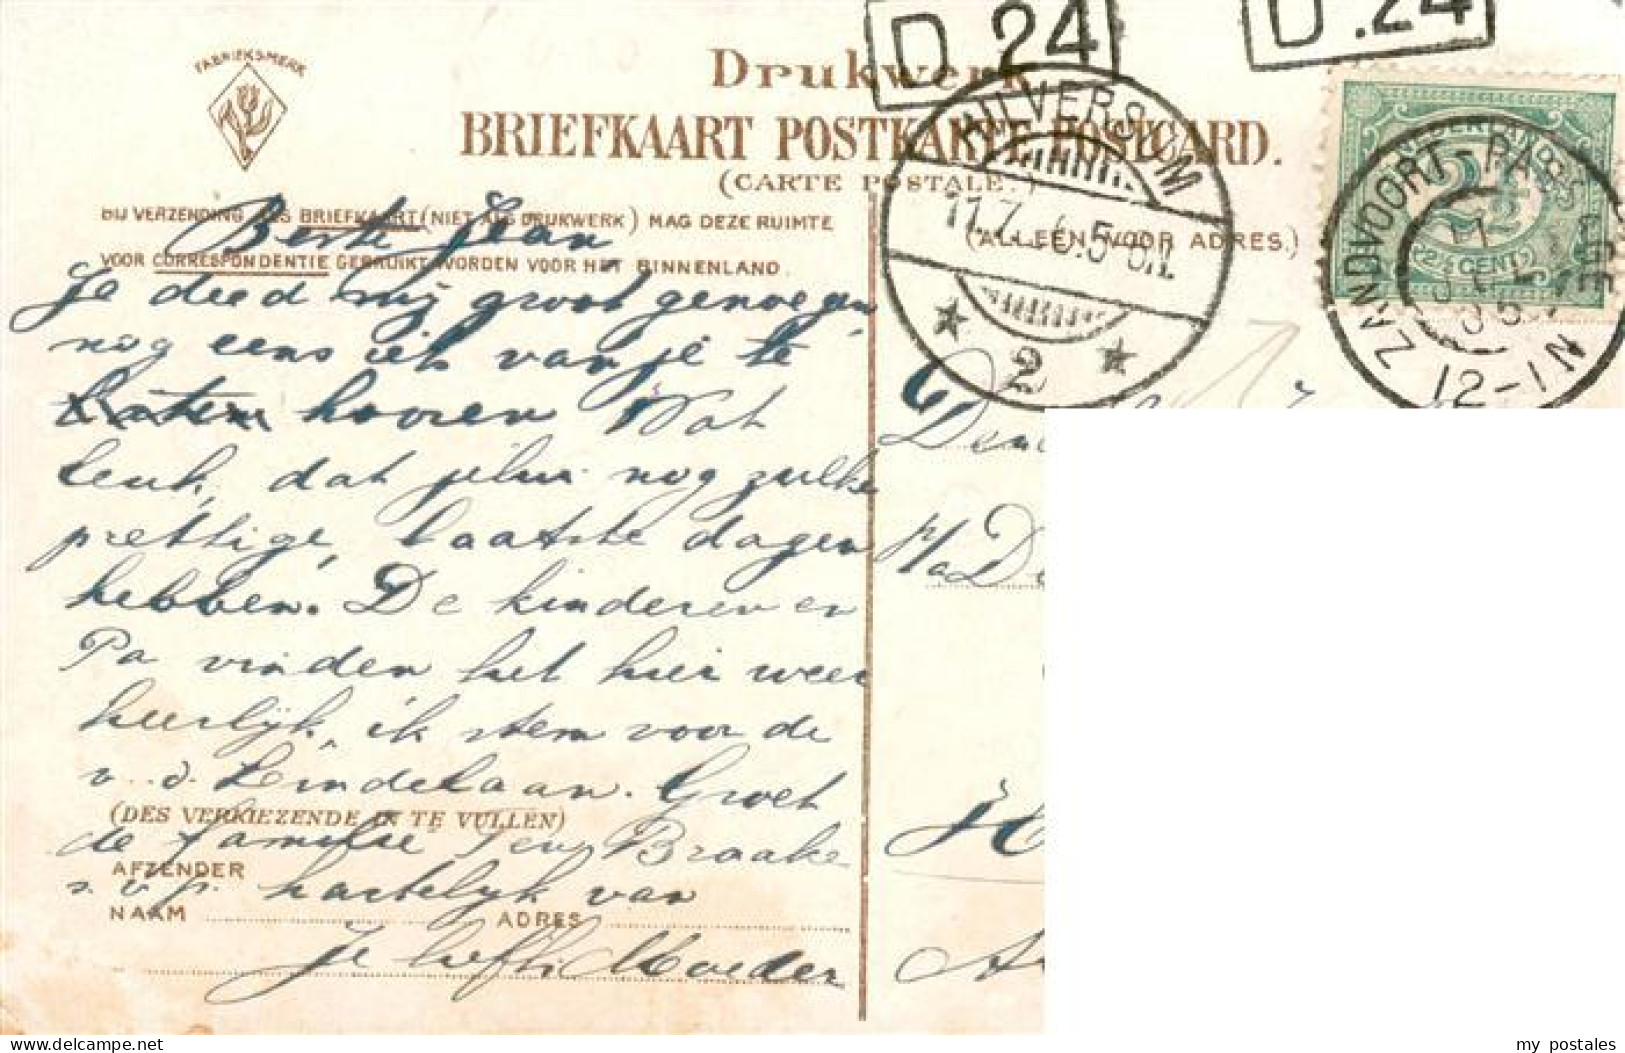 D.24
D.24
FABRIEKSMERK
Drukwerk
BRIEFKAART POSTKARTE POSTCARD.
(CARTE POSTALE.)
BIJ VERZENDING ALS BRIEFKAART (NIET ALS DRUKWERK) MAG DEZE RUIMTE
VOOR CORRESPONDENTIE GEBRUIKT WORDEN VOOR HET BINNENLAND.
(ALLEEN VOOR ADRES.)
HILVERSUM
11.7. 6.5-6N.
2
NEDERLAND
2½
(2½ CENT)
ZANDVOORT-PASSAGE
12-1N
Beste Jean
Je deed mij groot genoegen,
nog eens iets van je te
laten hooren Wat
leuk, dat jelui nog zulke
prettige, laatste dagen
hebben. De kinderen en
Pa vinden het hier weer
heerlijk, ik stem voor de
v. d. Lindelaan. Groet
(DES VERKIEZENDE IN TE VULLEN)
de familie Ten Braake
AFZENDER
s.v.p. hartelijk van
NAAM ADRES
Je liefh. Moeder
Den
p/a D
H
A
my postales